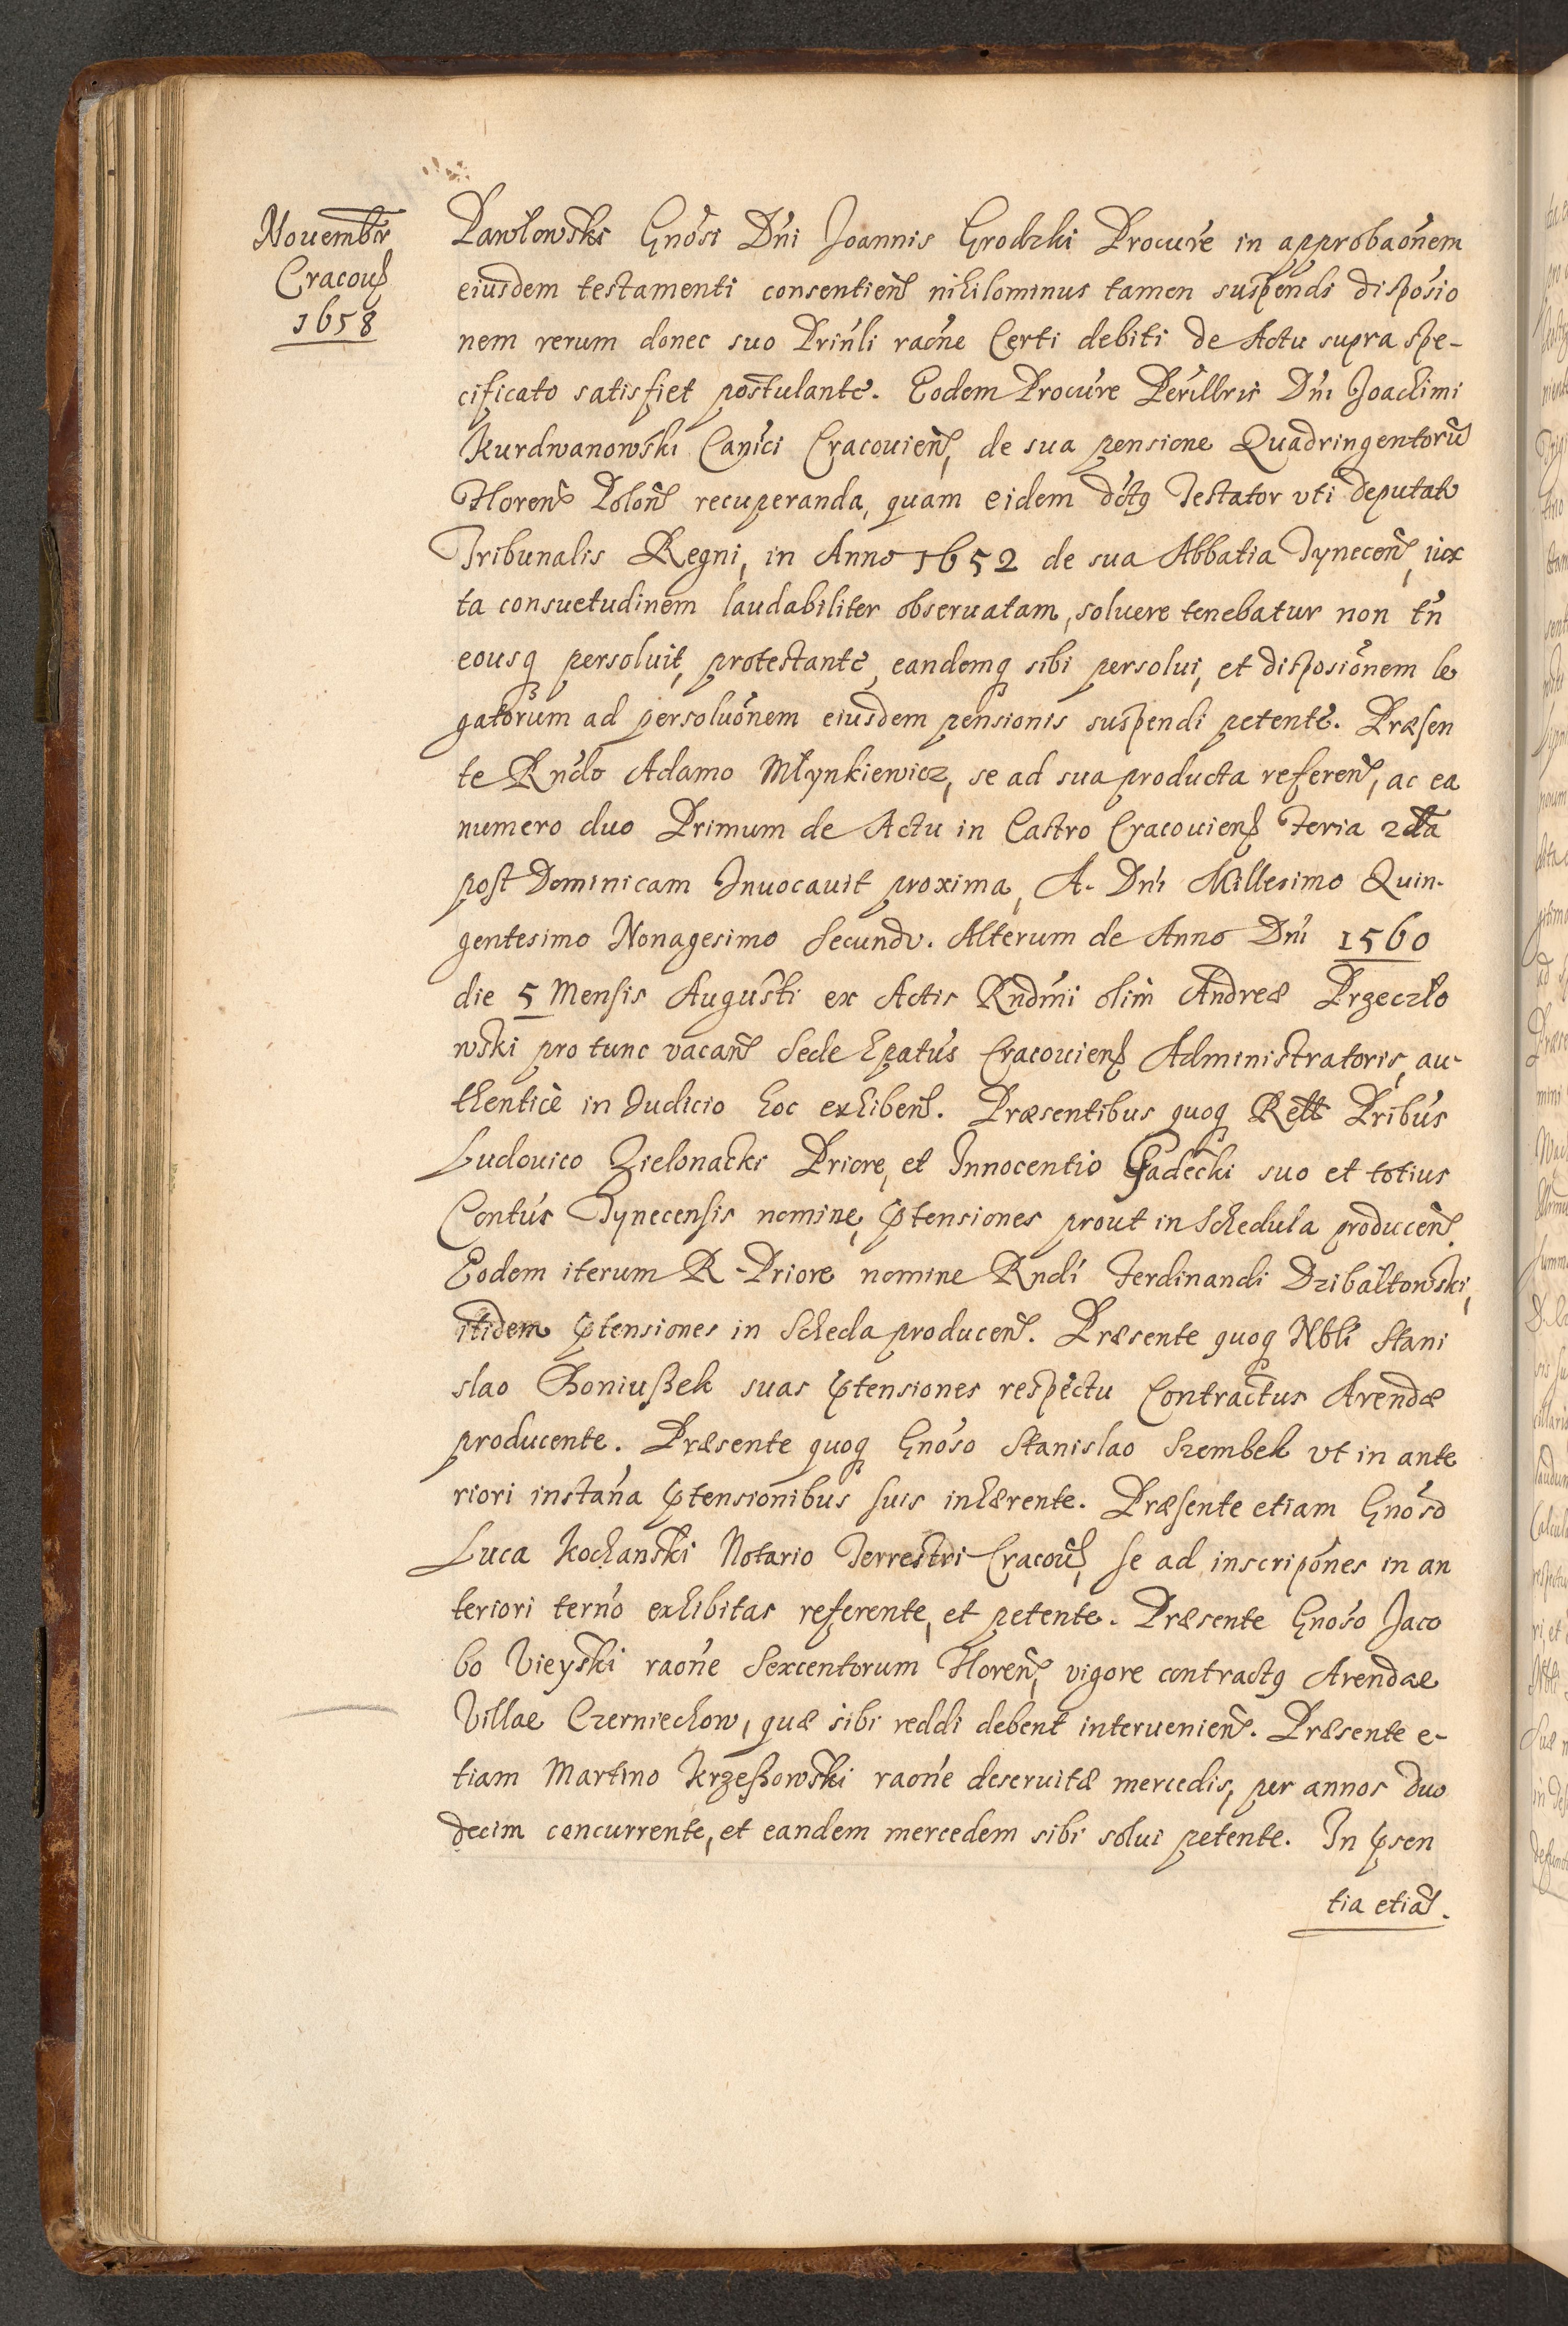 Nouembr̄
Cracou̅
1658
Pawłowski Gnósi Dńi Joannis Grodzki Procúre in approbaónem
eiusdem testamenti consentień nihilominus tamen suspendi disposio
nem rerum donec suo Prinli raóne Certi debiti de Actu supra spe-
cificato satisfiet postulante. Eodem Procúre Perillris Dńi Joachimi
Kurdwanowski Canici Cracouień, de sua pensione Quadringentorū
Floreń Poloń recuperanda, quam eidem dctꝰ Testator vti deputato
Tribunalis Regni, in Anno 1652 de sua Abbatia Tyneceń, iux
ta consuetudinem laudabiliter obseruatam, soluere tenebatur non tń
eousq persoluit, protestante, eandemq sibi persolui, et disposiónem le
gatorum ad persoluónem eiusdem pensionis suspendi petente. Præsen
te Rńdo Adamo Młynkiewicz, se ad sua producta refereń, ac ea
numero duo Primum de Actu in Castro Cracouień Feria 2da
post Dominicam Inuocauit proxima, A. Dńi Millesimo Quin-
gentesimo Nonagesimo Secundo. Alterum de Anno Dńi 1560
die 5 Mensis Augusti ex Actis Rndmi olim Andreæ Przeczło
wski pro tunc vacań Sede Epatús Cracouień Administratoris, au-
thenticè in Judicio hoc exhibeń. Præsentibus quoq Rett Pribús
Ludouico Zielonacki Priore, et Innocentio Gadecki suo et totius
Contús Tynecensis nomine, ꝓtensiones prout in Schedula produceń.
Eodem iterum R. Priore nomine Rndi Ferdinandi Dzibałtowski,
itidem ꝓtensiones in Scheda produceń. Præsente quoq Nbli Stani
slao Choniuszek suas ꝓtensiones respectu Contractus Arendæ
producente. Præsente quoq Gnóso Stanislao Szembek vt in ante
riori instańa ꝓtensionibus suis inhærente. Præsente etiam Gnóso
Luca Kochanski Notario Terrestri Cracou̅, se ad inscripónes in an
teriori terńo exhibitas referente, et petente. Præsente Gnoso Jaco
bo Vieyski raóne Sexcentorum Floreń, vigore contractꝰ Arendae
Villae Czerniechow, quæ sibi reddi debent interuenień. Præsente e-
tiam Martino Krzeszowski raóne deseruitæ mercedis, per annos duo
decim concurrente, et eandem mercedem sibi solui petente. In ꝓsen
tia etiā.